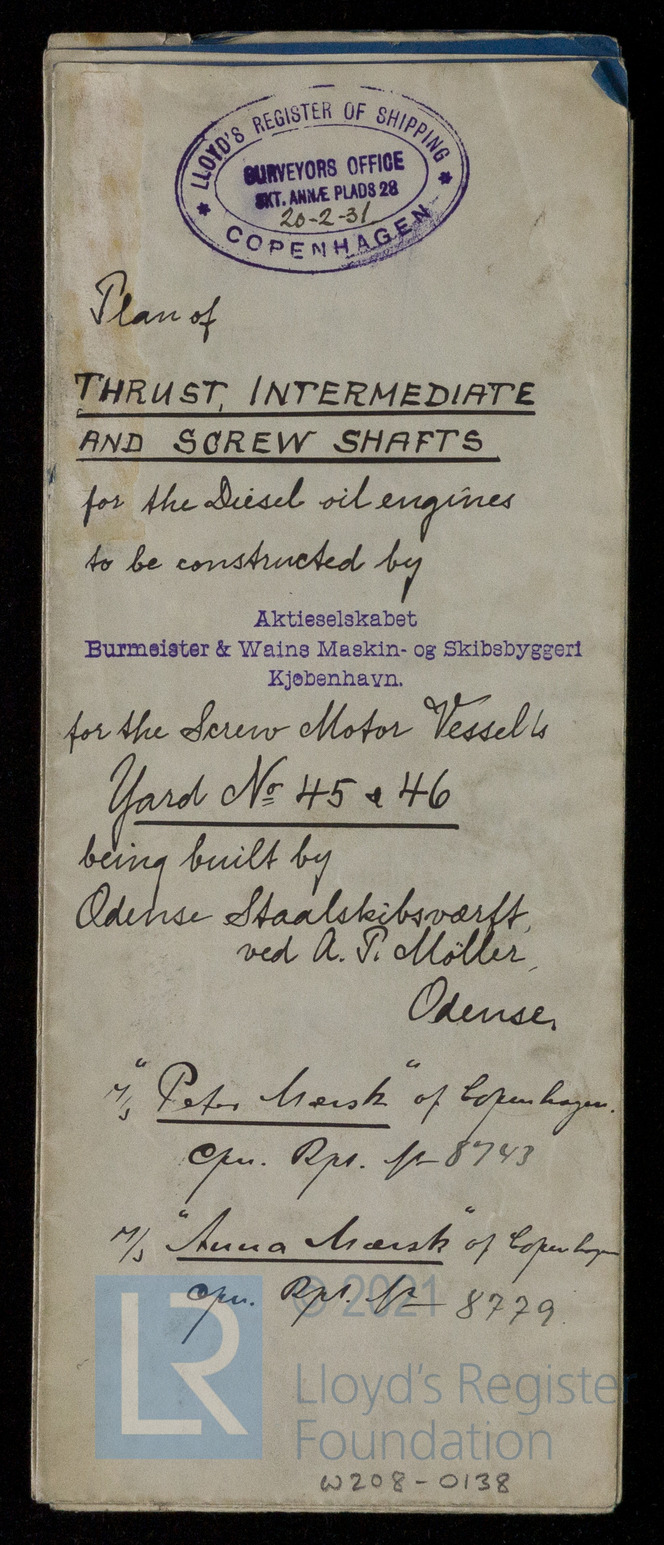 LLOYD'S REGISTER OF SHIPPING
SURVEYORS OFFICE
SKT. ANNÆ PLADS 28
20-2-31
COPENHAGEN
Plan of
THRUST, INTERMEDIATE
AND SCREW SHAFTS
for the Diesel oil engines
to be constructed by
Aktieselskabet
Burmeister & Wains Maskin- og Skibsbyggeri
Kjøbenhavn.
for the Screw Motor Vessel's
Yard No 45 & 46
being built by
Odense Staalskibsværft,
ved A. P. Möller,
Odense.
M/S "Peter Mærsk" of Copenhagen.
Cpn. Rpt. No 8743
M/S "Anna Mærsk" of Copenhagen
Cpn. Rpt. No 8779.
LR © 2021
Lloyd's Register
Foundation
W208-0138